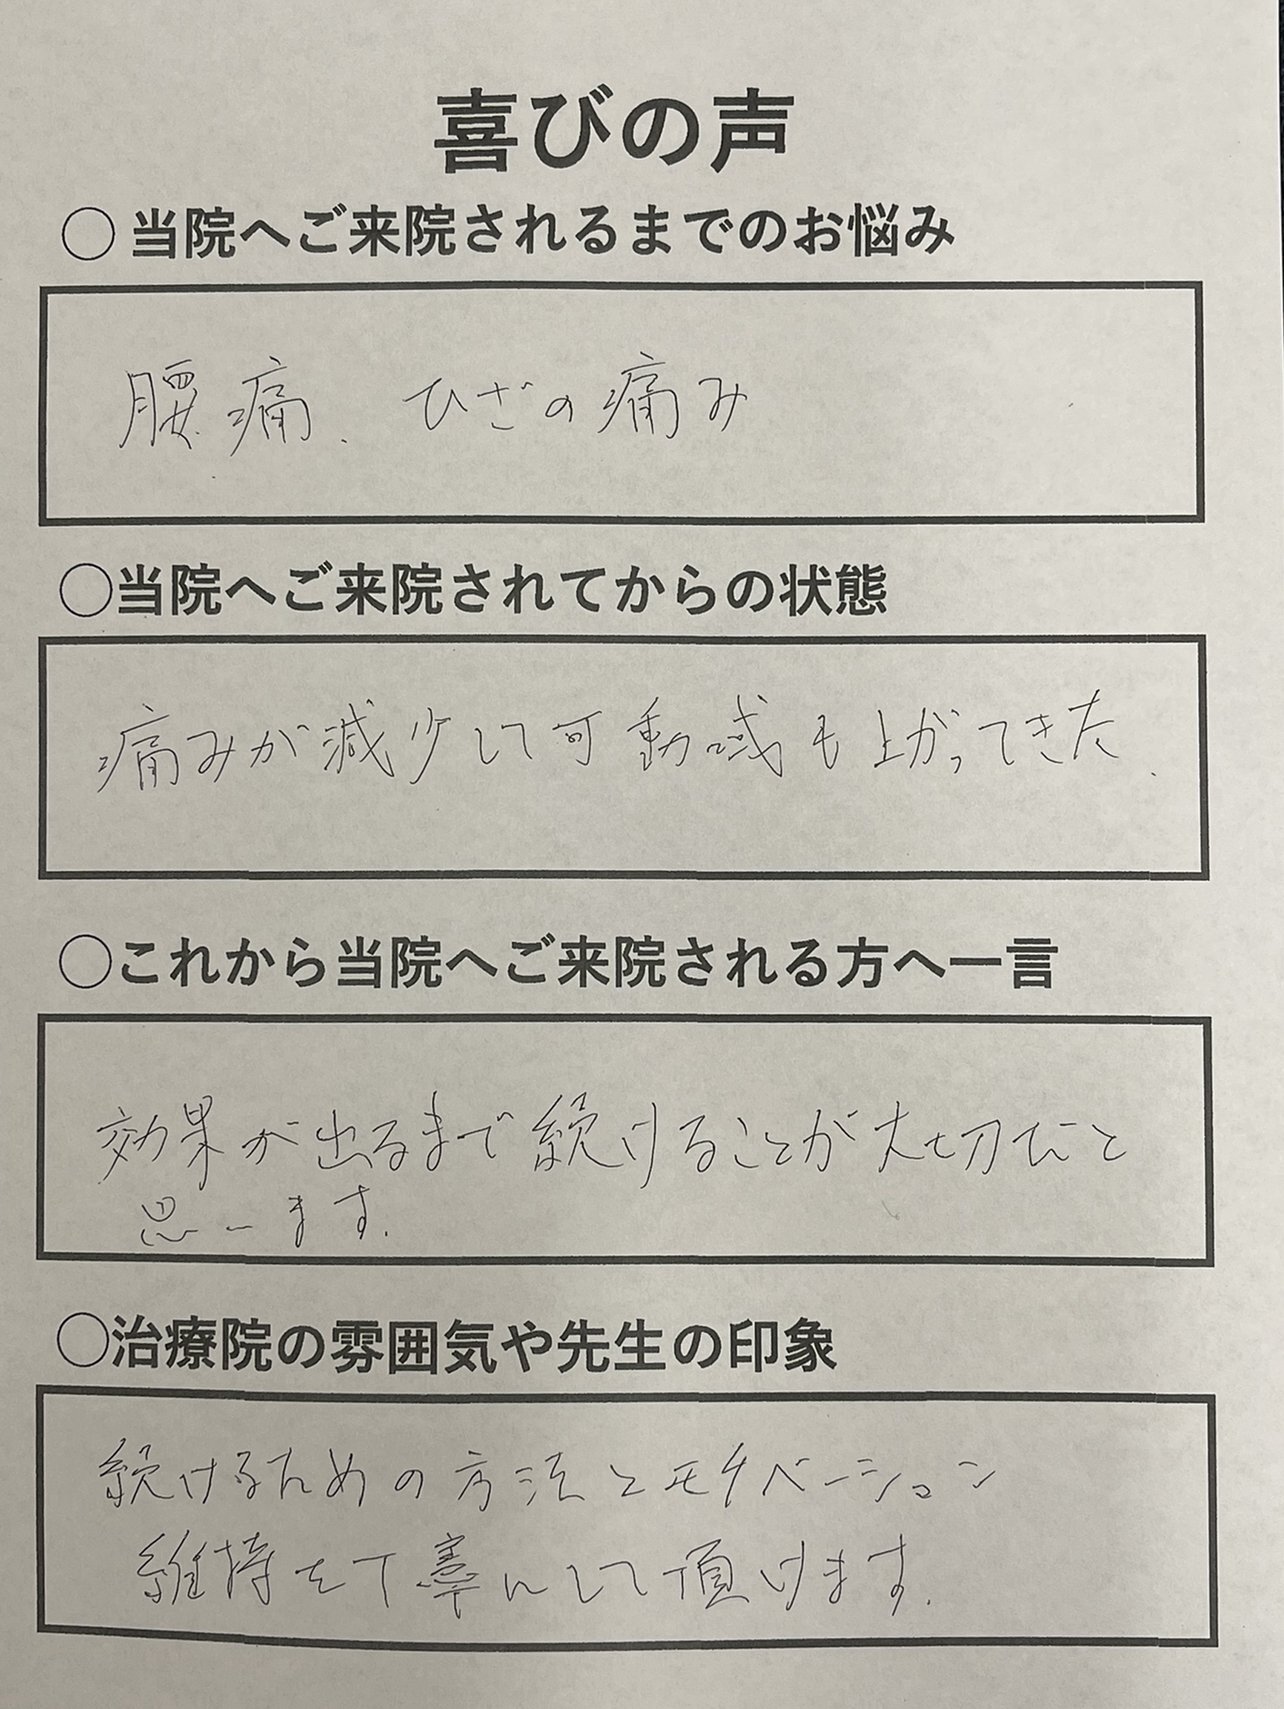 喜びの声
○当院へご来院されるまでのお悩み
腰痛、ひざの痛み
○当院へご来院されてからの状態
痛みが減少して可動域も上がってきた。
○これから当院へご来院される方へ一言
効果が出るまで続けることが大切だと
思います。
○治療院の雰囲気や先生の印象
続けるための方法とモチベーション
維持を丁寧にして頂けます。